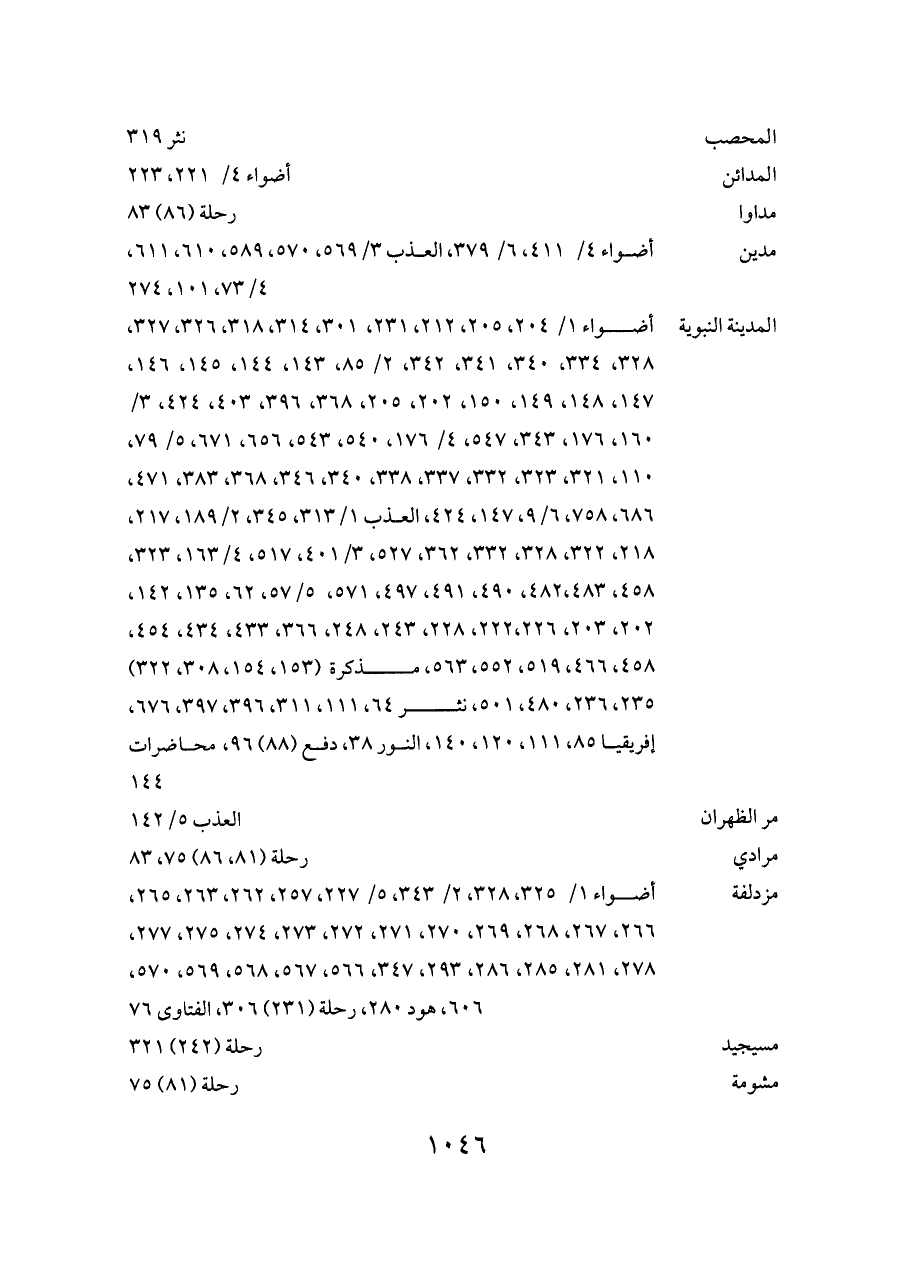 المحصب نثر ٣١٩
المدائن أضواء ٤/ ٢٢١، ٢٢٣
مداوا رحلة (٨٦) ٨٣
مدين أضواء ٤/ ٤١١، ٦/ ٣٧٩، العذب ٣/ ٥٦٩، ٥٧٠، ٥٨٩، ٦١٠، ٦١١،
٤/ ٧٣، ١٠١، ٢٧٤
المدينة النبوية أضواء ١/ ٢٠٤، ٢٠٥، ٢١٢، ٢٣١، ٣٠١، ٣١٤، ٣١٨، ٣٢٦، ٣٢٧،
٣٢٨، ٣٣٤، ٣٤٠، ٣٤١، ٣٤٢، ٢/ ٨٥، ١٤٣، ١٤٤، ١٤٥، ١٤٦،
١٤٧، ١٤٨، ١٤٩، ١٥٠، ٢٠٢، ٢٠٥، ٣٦٨، ٣٩٦، ٤٠٣، ٤٢٤، ٣/
١٦٠، ١٧٦، ٣٤٣، ٥٤٧، ٤/ ١٧٦، ٥٤٠، ٥٤٣، ٦٥٦، ٦٧١، ٥/ ٧٩،
١١٠، ٣٢١، ٣٢٣، ٣٣٢، ٣٣٧، ٣٣٨، ٣٤٠، ٣٤٦، ٣٦٨، ٣٨٣، ٤٧١،
٦٨٦، ٧٥٨، ٦/ ٩، ١٤٧، ٤٢٤، العذب ١/ ٣١٣، ٣٤٥، ٢/ ١٨٩، ٢١٧،
٢١٨، ٣٢٢، ٣٢٨، ٣٣٢، ٣٦٢، ٥٢٧، ٣/ ٤٠١، ٥١٧، ٤/ ١٦٣، ٣٢٣،
٤٥٨، ٤٨٣،٤٨٢، ٤٩٠، ٤٩١، ٤٩٧، ٥٧١، ٥/ ٥٧، ٦٢، ١٣٥، ١٤٢،
٢٠٢، ٢٠٣، ٢٢٦،٢٢٢، ٢٢٨، ٢٤٣، ٢٤٨، ٣٦٦، ٤٣٣، ٤٣٤، ٤٥٤،
٤٥٨، ٤٦٦، ٥١٩، ٥٥٢، ٥٦٣، مذكرة (١٥٣، ١٥٤، ٣٠٨، ٣٢٢)
٢٣٥، ٢٣٦، ٤٨٠، ٥٠١، نثر ٦٤، ١١١، ٣١١، ٣٩٦، ٣٩٧، ٦٧٦،
إفريقيا ٨٥، ١١١، ١٢٠، ١٤٠، النور ٣٨، دفع (٨٨) ٩٦، محاضرات
١٤٤
مر الظهران العذب ٥/ ١٤٢
مرادي رحلة (٨١، ٨٦) ٧٥، ٨٣
مزدلفة أضواء ١/ ٣٢٥، ٣٢٨، ٢/ ٣٤٣، ٥/ ٢٢٧، ٢٥٧، ٢٦٢، ٢٦٣، ٢٦٥،
٢٦٦، ٢٦٧، ٢٦٨، ٢٦٩، ٢٧٠، ٢٧١، ٢٧٢، ٢٧٣، ٢٧٤، ٢٧٥، ٢٧٧،
٢٧٨، ٢٨١، ٢٨٥، ٢٨٦، ٢٩٣، ٣٤٧، ٥٦٦، ٥٦٧، ٥٦٨، ٥٦٩، ٥٧٠،
٦٠٦، هود ٢٨٠، رحلة (٢٣١) ٣٠٦، الفتاوى ٧٦
مسيجيد رحلة (٢٤٢) ٣٢١
مشومة رحلة (٨١) ٧٥
١٠٤٦